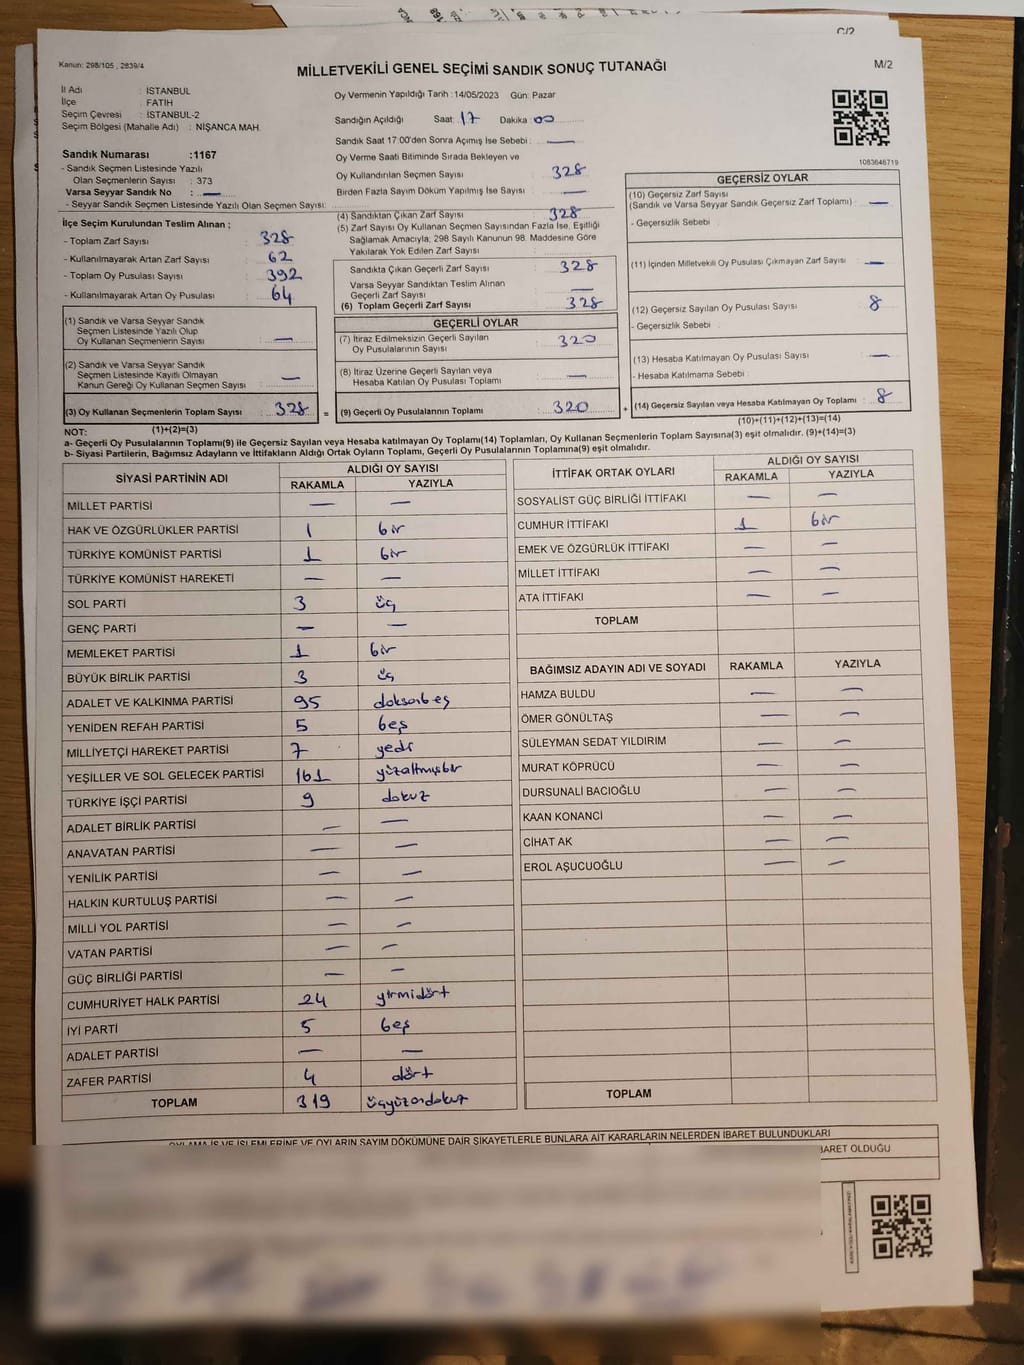 C/2
Kanun: 298/105 , 2839/4
MİLLETVEKİLİ GENEL SEÇİMİ SANDIK SONUÇ TUTANAĞI
M/2
İl Adı : İSTANBUL
İlçe : FATİH
Seçim Çevresi : İSTANBUL-2
Seçim Bölgesi (Mahalle Adı) : NİŞANCA MAH.
Sandık Numarası :1167
- Sandık Seçmen Listesinde Yazılı
Olan Seçmenlerin Sayısı : 373
Varsa Seyyar Sandık No : —
- Seyyar Sandık Seçmen Listesinde Yazılı Olan Seçmen Sayısı:
Oy Vermenin Yapıldığı Tarih :14/05/2023 Gün: Pazar
Sandığın Açıldığı Saat: 17 Dakika: 00
Sandık Saat 17:00'den Sonra Açımış İse Sebebi : —
Oy Verme Saati Bitiminde Sırada Bekleyen ve
Oy Kullandırılan Seçmen Sayısı : 328
Birden Fazla Sayım Döküm Yapılmış İse Sayısı : —
1083646719
İlçe Seçim Kurulundan Teslim Alınan ;
- Toplam Zarf Sayısı : 328
- Kullanılmayarak Artan Zarf Sayısı : 62
- Toplam Oy Pusulası Sayısı : 392
- Kullanılmayarak Artan Oy Pusulası : 64
(1) Sandık ve Varsa Seyyar Sandık
Seçmen Listesinde Yazılı Olup
Oy Kullanan Seçmenlerin Sayısı : —
(2) Sandık ve Varsa Seyyar Sandık
Seçmen Listesinde Kayıtlı Olmayan
Kanun Gereği Oy Kullanan Seçmen Sayısı : —
(3) Oy Kullanan Seçmenlerin Toplam Sayısı : 328 =
(1)+(2)=(3)
(4) Sandıktan Çıkan Zarf Sayısı : 328
(5) Zarf Sayısı Oy Kullanan Seçmen Sayısından Fazla İse, Eşitliği
Sağlamak Amacıyla; 298 Sayılı Kanunun 98. Maddesine Göre
Yakılarak Yok Edilen Zarf Sayısı :
Sandıkta Çıkan Geçerli Zarf Sayısı : 328
Varsa Seyyar Sandıktan Teslim Alınan
Geçerli Zarf Sayısı : —
(6) Toplam Geçerli Zarf Sayısı : 328
GEÇERLİ OYLAR
(7) İtiraz Edilmeksizin Geçerli Sayılan
Oy Pusulalarının Sayısı : 320
(8) İtiraz Üzerine Geçerli Sayılan veya
Hesaba Katılan Oy Pusulası Toplamı : —
(9) Geçerli Oy Pusulalarının Toplamı : 320 +
GEÇERSİZ OYLAR
(10) Geçersiz Zarf Sayısı
(Sandık ve Varsa Seyyar Sandık Geçersiz Zarf Toplamı) : —
- Geçersizlik Sebebi :
(11) İçinden Milletvekili Oy Pusulası Çıkmayan Zarf Sayısı : —
(12) Geçersiz Sayılan Oy Pusulası Sayısı : 8
- Geçersizlik Sebebi :
(13) Hesaba Katılmayan Oy Pusulası Sayısı : —
- Hesaba Katılmama Sebebi :
(14) Geçersiz Sayılan veya Hesaba Katılmayan Oy Toplamı : 8
(10)+(11)+(12)+(13)=(14)
NOT:
a- Geçerli Oy Pusulalarının Toplamı(9) ile Geçersiz Sayılan veya Hesaba katılmayan Oy Toplamı(14) Toplamları, Oy Kullanan Seçmenlerin Toplam Sayısına(3) eşit olmalıdır. (9)+(14)=(3)
b- Siyasi Partilerin, Bağımsız Adayların ve İttifakların Aldığı Oyların Toplamı, Geçerli Oy Pusulalarının Toplamına(9) eşit olmalıdır.
SİYASİ PARTİNİN ADI ALDIĞI OY SAYISI
RAKAMLA YAZIYLA
MİLLET PARTİSİ — —
HAK VE ÖZGÜRLÜKLER PARTİSİ 1 bir
TÜRKİYE KOMÜNİST PARTİSİ 1 bir
TÜRKİYE KOMÜNİST HAREKETİ — —
SOL PARTİ 3 üç
GENÇ PARTİ — —
MEMLEKET PARTİSİ 1 bir
BÜYÜK BİRLİK PARTİSİ 3 üç
ADALET VE KALKINMA PARTİSİ 95 doksanbeş
YENİDEN REFAH PARTİSİ 5 beş
MİLLİYETÇİ HAREKET PARTİSİ 7 yedi
YEŞİLLER VE SOL GELECEK PARTİSİ 161 yüzaltmışbir
TÜRKİYE İŞÇİ PARTİSİ 9 dokuz
ADALET BİRLİK PARTİSİ — —
ANAVATAN PARTİSİ — —
YENİLİK PARTİSİ — —
HALKIN KURTULUŞ PARTİSİ — —
MİLLİ YOL PARTİSİ — —
VATAN PARTİSİ — —
GÜÇ BİRLİĞİ PARTİSİ — —
CUMHURİYET HALK PARTİSİ 24 yirmidört
İYİ PARTİ 5 beş
ADALET PARTİSİ — —
ZAFER PARTİSİ 4 dört
TOPLAM 319 üçyüzondokuz
İTTİFAK ORTAK OYLARI ALDIĞI OY SAYISI
RAKAMLA YAZIYLA
SOSYALİST GÜÇ BİRLİĞİ İTTİFAKI — —
CUMHUR İTTİFAKI 1 bir
EMEK VE ÖZGÜRLÜK İTTİFAKI — —
MİLLET İTTİFAKI — —
ATA İTTİFAKI — —
TOPLAM
BAĞIMSIZ ADAYIN ADI VE SOYADI RAKAMLA YAZIYLA
HAMZA BULDU — —
ÖMER GÖNÜLTAŞ — —
SÜLEYMAN SEDAT YILDIRIM — —
MURAT KÖPRÜCÜ — —
DURSUNALİ BACIOĞLU — —
KAAN KONANCİ — —
CİHAT AK — —
EROL AŞUCUOĞLU — —
TOPLAM
OYLAMA İŞ VE İŞLEMLERİNE VE OYLARIN SAYIM DÖKÜMÜNE DAİR ŞİKAYETLERLE BUNLARA AİT KARARLARIN NELERDEN İBARET BULUNDUKLARI
BARET OLDUĞU